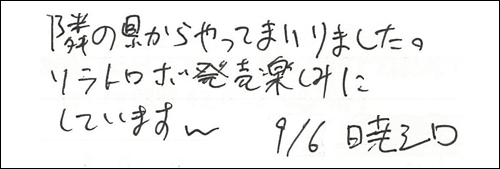 隣の県からやってまいりました。
ソラトロボ発売楽しみに
しています〜 9/6 暁シロ